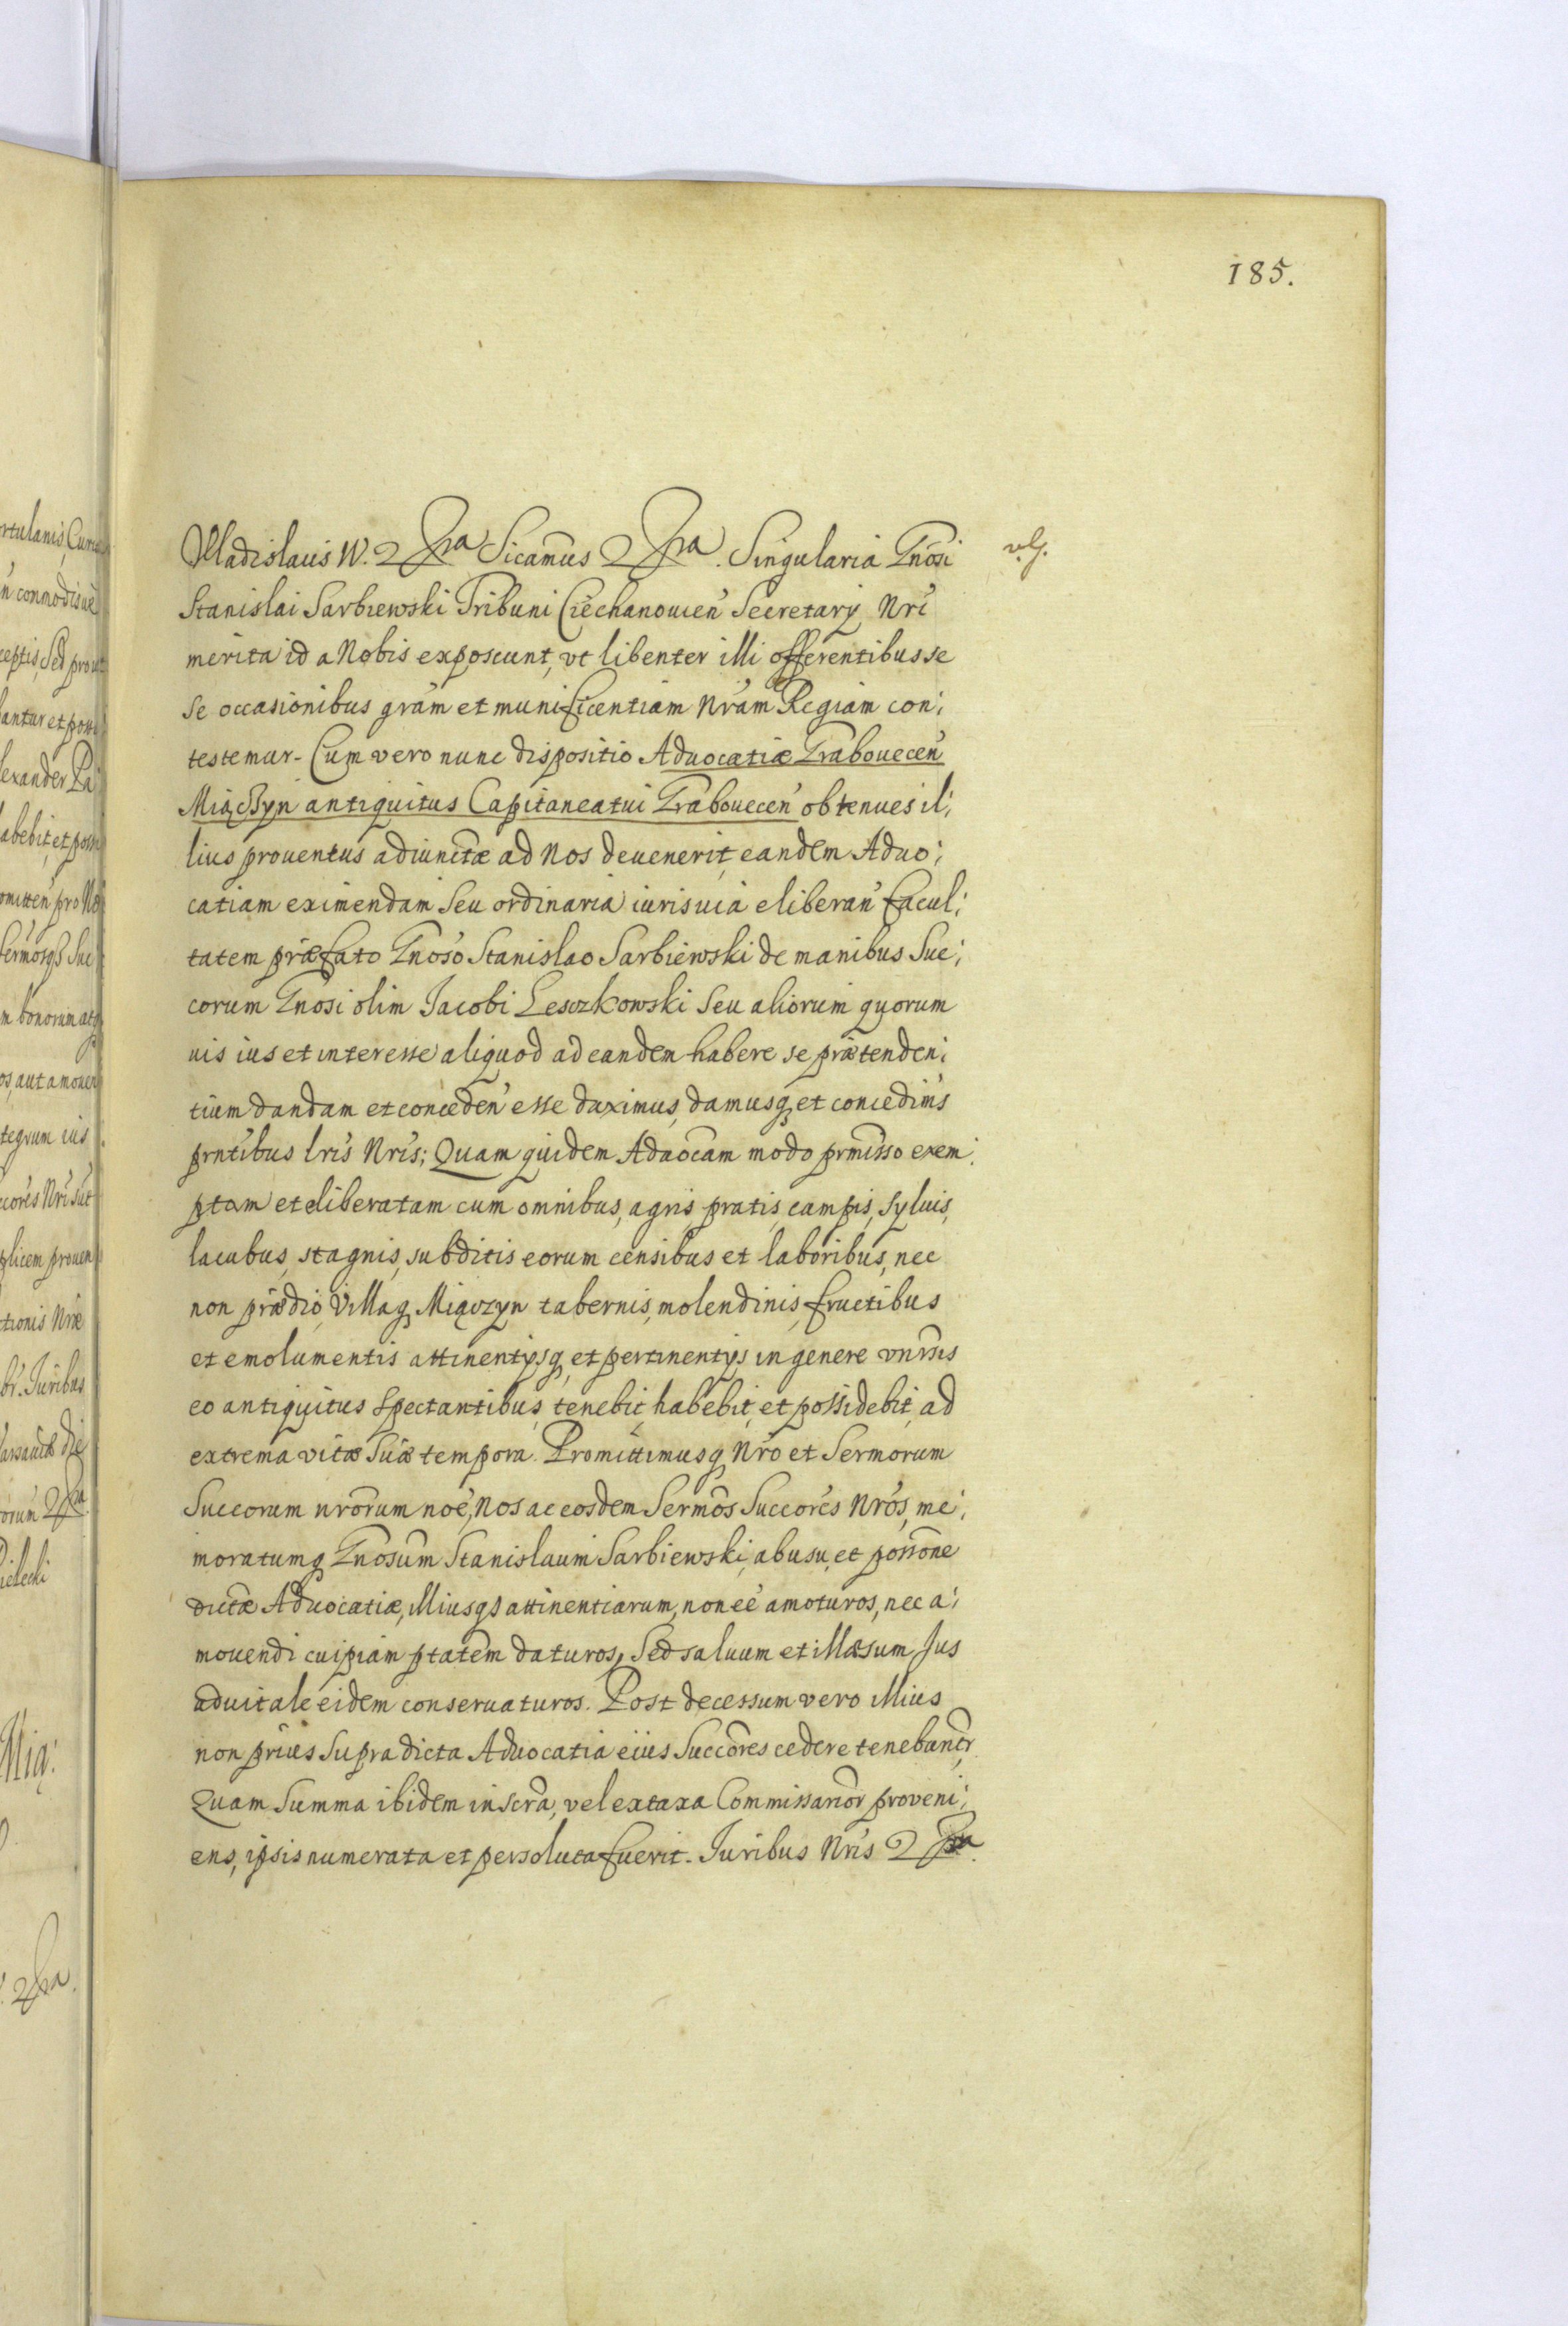 185.
Vladislaus IV. Sicamus Singularia Gnosi
Stanislai Sarbiewski Tribuni Ciechanouien Secretarÿ Nri
merita id a Nobis exposcunt, vt libenter illi offerentibus se
se occasionibus gram et munificentiam Nram Regiam con:
testemur. Cum vero nunc dispositio Aduocatiæ Grabouecen
Miączyn antiquitus Capitaneatui Grabouecen ob tenues il:
lius prouentus adiunctæ ad Nos deuenerit, eandem Aduo:
catiam eximendam seu ordinaria iuris uia eliberan facul:
tatem præfato Gnoso Stanislao Sarbiewski de manibus Suc:
corum Gnosi olim Jacobi Leszkowski seu aliorum quorum
uis ius et interesse aliquod ad eandem habere se prætenden:
tium dandam et conceden esse duximus, damusq et concedims
prntibus lris Nris; Quam quidem Aduocam modo prmisso exem:
ptam et eliberatam cum omnibus, agris pratis, campis, syluis,
lacubus, stagnis, subditis eorum censibus et laboribus, nec
non prædio, Villaq Miączyn tabernis, molendinis, fructibus
et emolumentis attinentÿsq et pertinentÿs in genere vnrsis
eo antiquitus spectantibus, tenebit, habebit, et possidebit, ad
extrema vitæ suæ tempora. Promittimusq Nro et Sermorum
Succorum nrorum noe, Nos ac eosdem Sermos Succores Nros, me:
moratumq Gnosum Stanislaum Sarbiewski, ab usu, et possone
dictæ Aduocatiæ, illiusqs attinentiarum, non eè amoturos, nec a:
mouendi cuipiam ptatem daturos, Sed saluum et illæsum Jus
aduitale eidem conseruaturos. Post decessum vero illius
non prius supra dicta Aduocatia eius Succores cedere tenebuntr,
Quam Summa ibidem inscra, vel ex taxa Commissarior proveni:
ens, ipsis numerata et persoluta fuerit. Juribus Nris